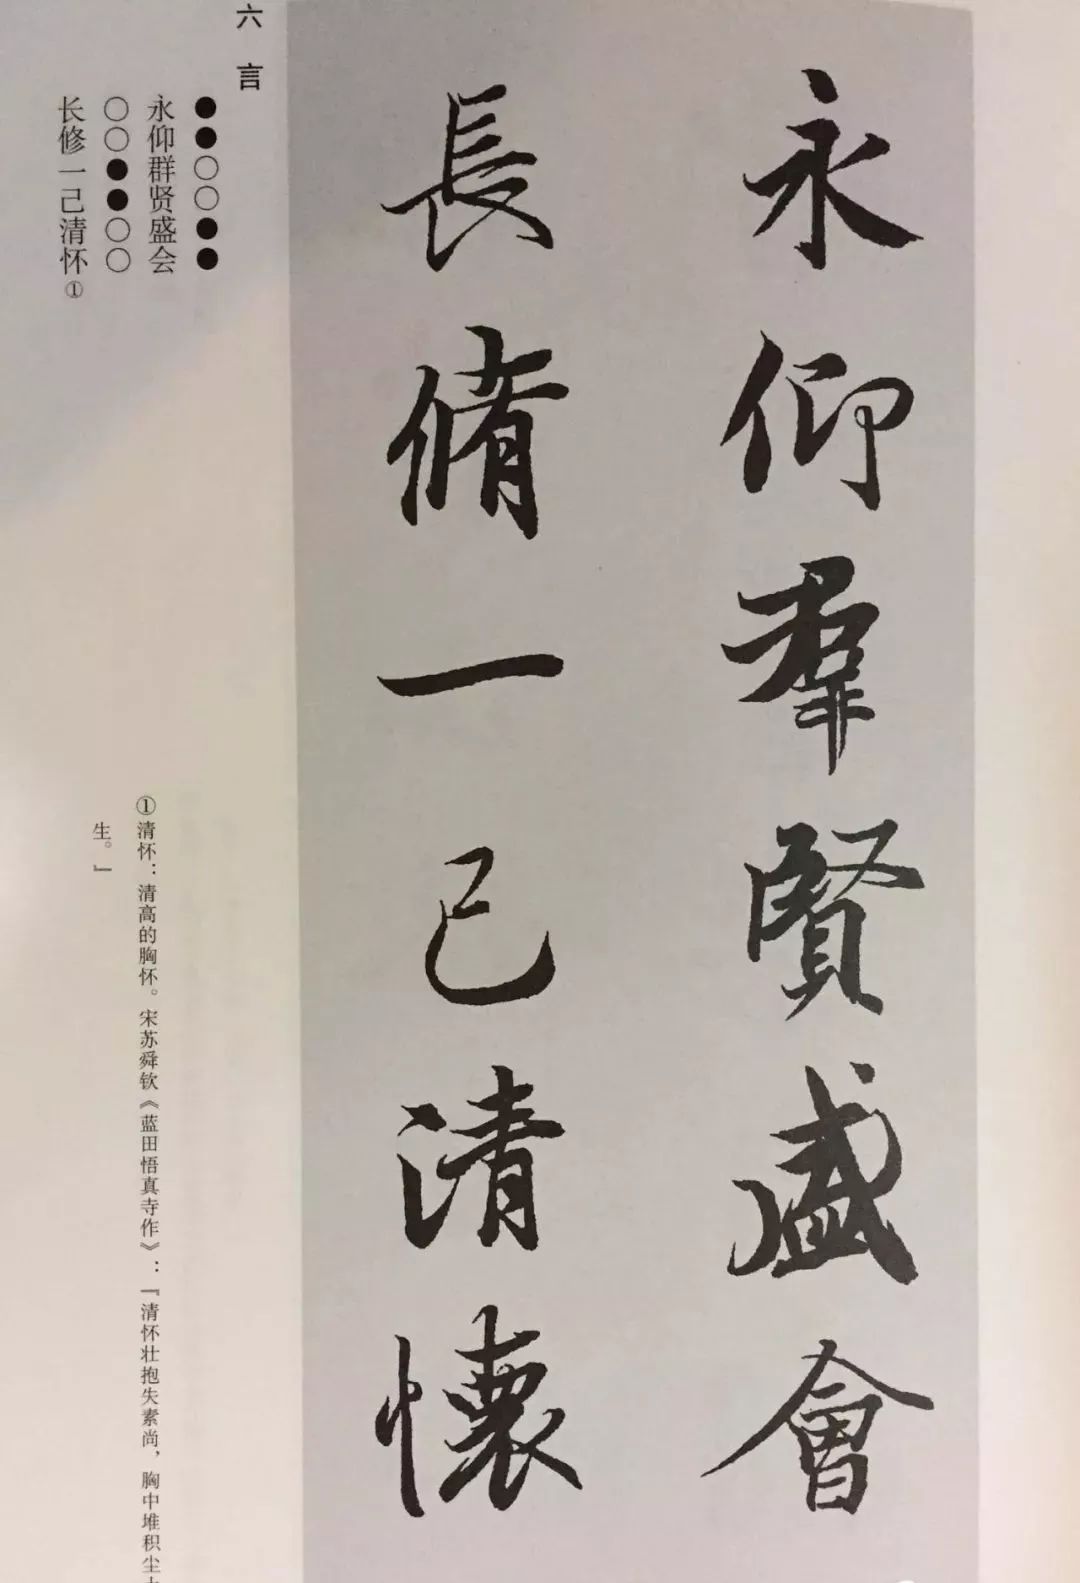 永仰羣賢盛會
長脩一己清懷
六言
●●○○●●
永仰群贤盛会
○○●●○○
长修一己清怀①
①清怀：清高的胸怀。宋苏舜钦《蓝田悟真寺作》：『清怀壮抱失素尚，胸中堆积尘
生。』